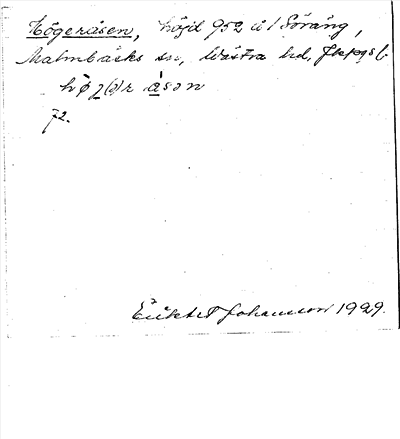 Högeråsen, höjd 952 å 1 Söräng,
Malmbäcks sn, Västra hd, Jkpgs l.
hö̀g(ə)r åsən
72.
Johansson 1929.